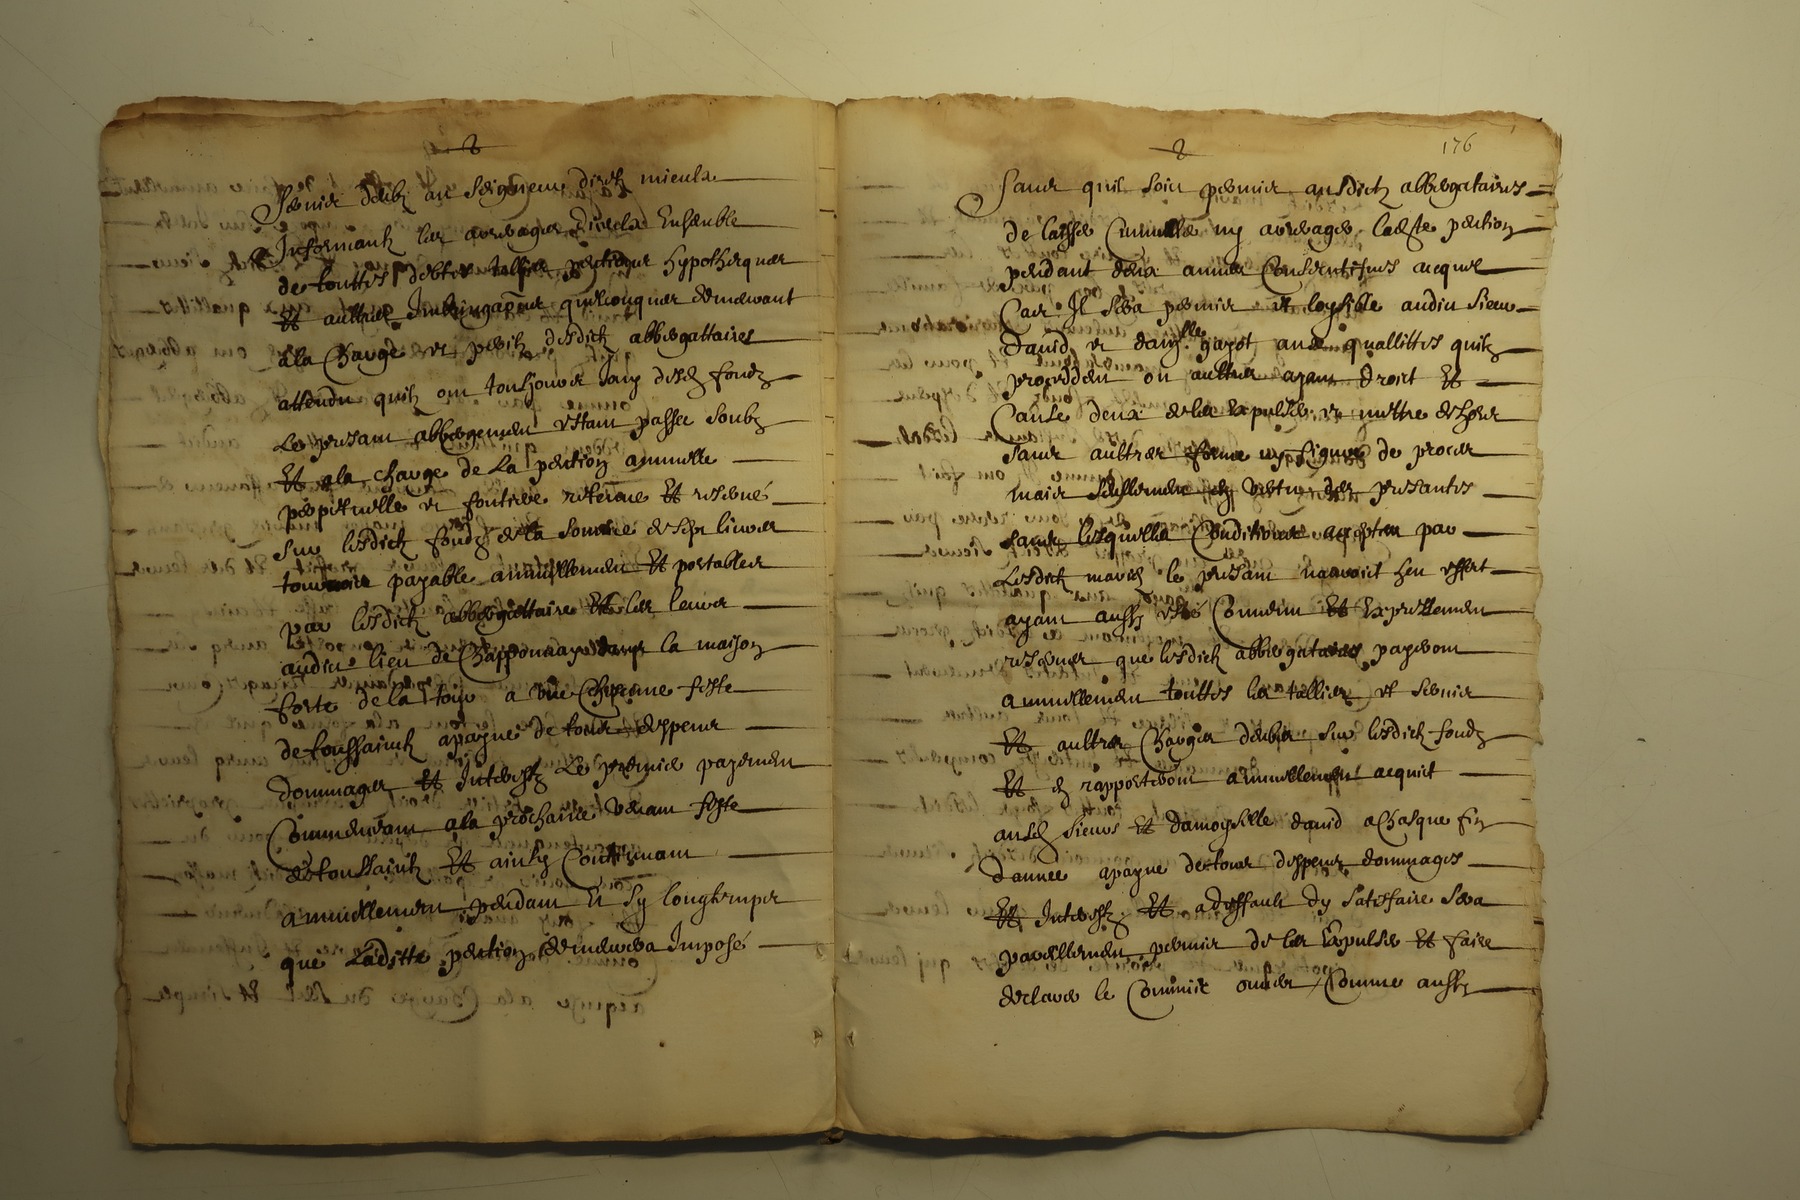 2
Servis deubz au Seigneur direct mieulx
Informantz les arreages Dicela Ensemble
de touttes debtes tallies pentions hypotheques
Et aultres quelconques demeurant
a la Charge et perilz desdictz abbergattaires
attendu quilz ont tousjours jouy desd fondz
Le presant abbergement estant passee soubz
Et ala charge de La pention annuelle
perpetuelle et fontiere retenue Et reservé
sur lesdictz fondz de la somme de sept livres
tournois payable annuellement Et portables
par lesdictz abbergattaire Et les leurs
audit lieu de Chapponnay dans la maison
forte de la tour a une Chescune feste
de toussainctz apayne de tous despens
dommages Et Interestz Le premier payement
Commencant ala prochaine venant feste
de toussainctz Et ainsy Continuant
annuellement pendant Et sy longtemps
que Laditte pention demeurera Imposé
2
176
Sans quil soict permis ausdictz abbergataires
de laisser Cumuller ny arreager ladte pention
pendant deux annees Consecutifves acquis
Car Il sera permis et loysible audit sieur
David et damlle gayot aus quallittes quilz
proceddent ou aultres ayant droict Et
Cause deux de les Expulser et mettre dehors
sans aultres forme ny figure de proces
mais seullement en vertu des presantes
sans lesquelles Conditions acceptees par
Lesdictz mariez le presant nauroict heu effect
ayant aussy esté Convenu Et Expressement
reserves que lesdictz abbergataires payeront
annuellement touttes les tallies et servis
Et aultres Charges deubes sur lesdictz fondz
Et en rapporteront annuellement acquit
ausd sieurs Et damoyselle david a Chasque fin
dannee apayne de tous despens dommages
Et Interestz Et a deffault dy satisfaire sera
pareillement permis de les Expulser Et faire
declarer le Commis ouvert Comme aussy